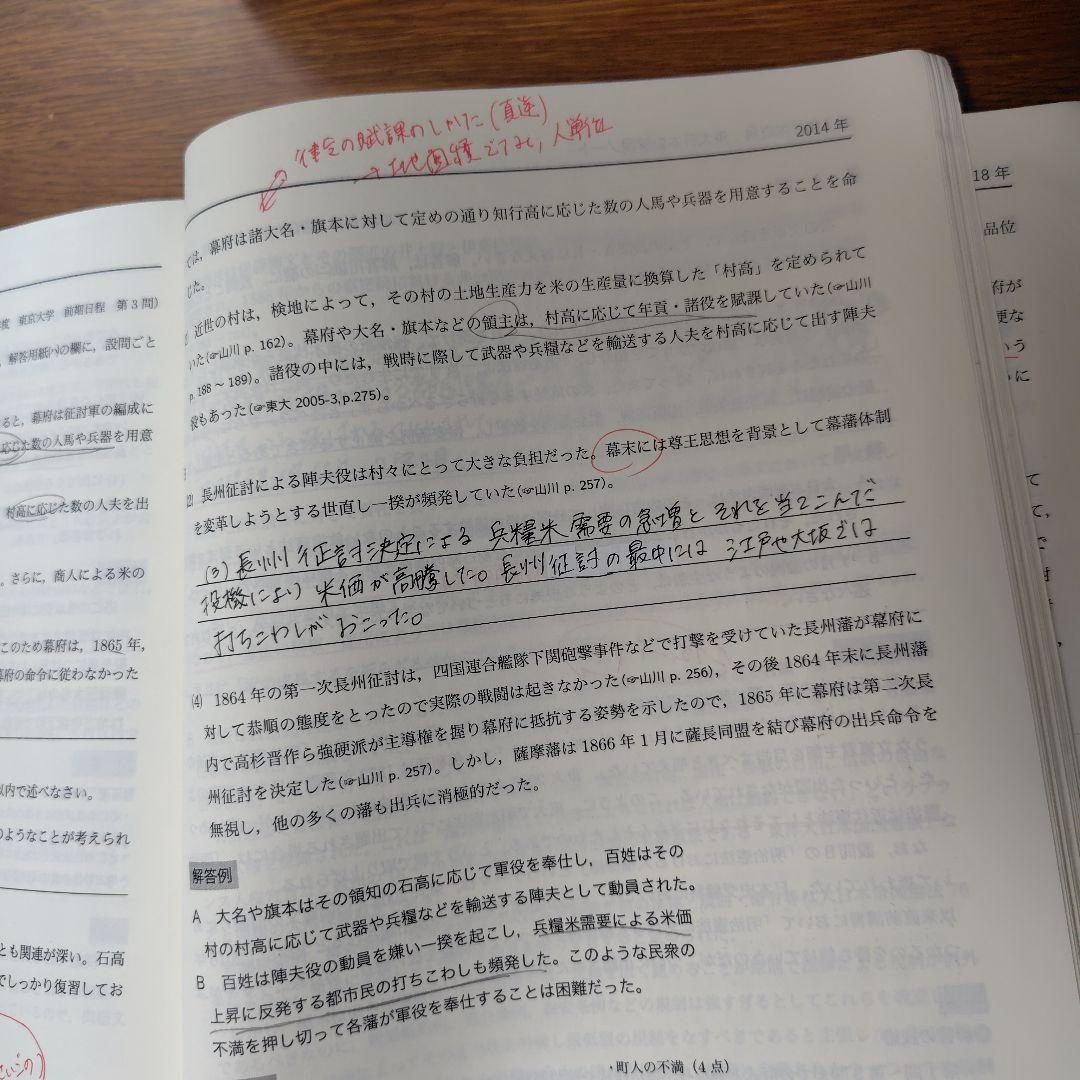 律令の賦課のしかた(直逆)
→土地面積でなく、人単位
2014 年
18 年
ては，幕府は諸大名・旗本に対して定めの通り知行高に応じた数の人馬や兵器を用意することを命
じた。
近世の村は，検地によって，その村の土地生産力を米の生産量に換算した「村高」を定められて
いた(☞山川 p. 162)。幕府や大名・旗本などの領主は，村高に応じて年貢・諸役を賦課していた(☞山川
p. 188～189)。諸役の中には，戦時に際して武器や兵糧などを輸送する人夫を村高に応じて出す陣夫
役もあった(☞東大 2005-3, p.275)。
(2) 長州征討による陣夫役は村々にとって大きな負担だった。幕末には尊王思想を背景として幕藩体制
を変革しようとする世直し一揆が頻発していた(☞山川 p. 257)。
(3) 長州征討決定による兵糧米需要の急増とそれを当てこんだ
投機により米価が高騰した。長州征討の最中には江戸や大坂では
打ちこわしがおこった。
(4) 1864 年の第一次長州征討は，四国連合艦隊下関砲撃事件などで打撃を受けていた長州藩が幕府に
対して恭順の態度をとったので実際の戦闘は起きなかった(☞山川 p. 256)，その後 1864 年末に長州藩
内で高杉晋作ら強硬派が主導権を握り幕府に抵抗する姿勢を示したので，1865 年に幕府は第二次長
州征討を決定した(☞山川 p. 257)。しかし，薩摩藩は 1866 年 1 月に薩長同盟を結び幕府の出兵命令を
無視し，他の多くの藩も出兵に消極的だった。
解答例
A 大名や旗本はその領知の石高に応じて軍役を奉仕し，百姓はその
村の村高に応じて武器や兵糧などを輸送する陣夫として動員された。
B 百姓は陣夫役の動員を嫌い一揆を起こし，兵糧米需要による米価
上昇に反発する都市民の打ちこわしも頻発した。このような民衆の
不満を押し切って各藩が軍役を奉仕することは困難だった。
・町人の不満（4 点）
度 東京大学 前期日程 第 3 問)
解答用紙(ハ)の欄に，設問ごと
ると，幕府は征討軍の編成に
応じた数の人馬や兵器を用意
村高に応じた数の人夫を出
。さらに，商人による米の
このため幕府は，1865 年，
幕府の命令に従わなかった
以内で述べなさい。
のようなことが考えられ
とも関連が深い。石高
でしっかり復習してお
品位
府が
更な
いう